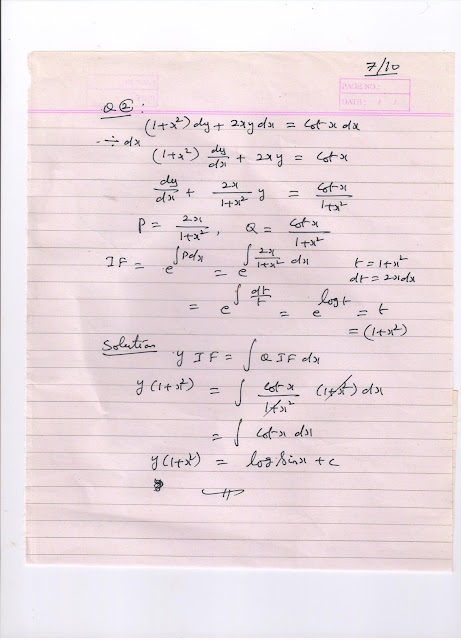 7/10
PAGE NO.:
DATE: / /
Q ②:
(1+x²) dy + 2xy dx = cot x dx
÷ dx
(1+x²) dy/dx + 2xy = cot x
dy/dx + 2x/(1+x²) y = cot x/(1+x²)
P = 2x/(1+x²), Q = cot x/(1+x²)
IF = e^∫Pdx = e^∫ 2x/(1+x²) dx t = 1+x²
dt = 2x dx
= e^∫ dt/t = e^log t = t
= (1+x²)
Solution y IF = ∫ Q IF dx
y(1+x²) = ∫ cot x/(1+x²) (1+x²) dx
= ∫ cot x dx
y(1+x²) = log sin x + c